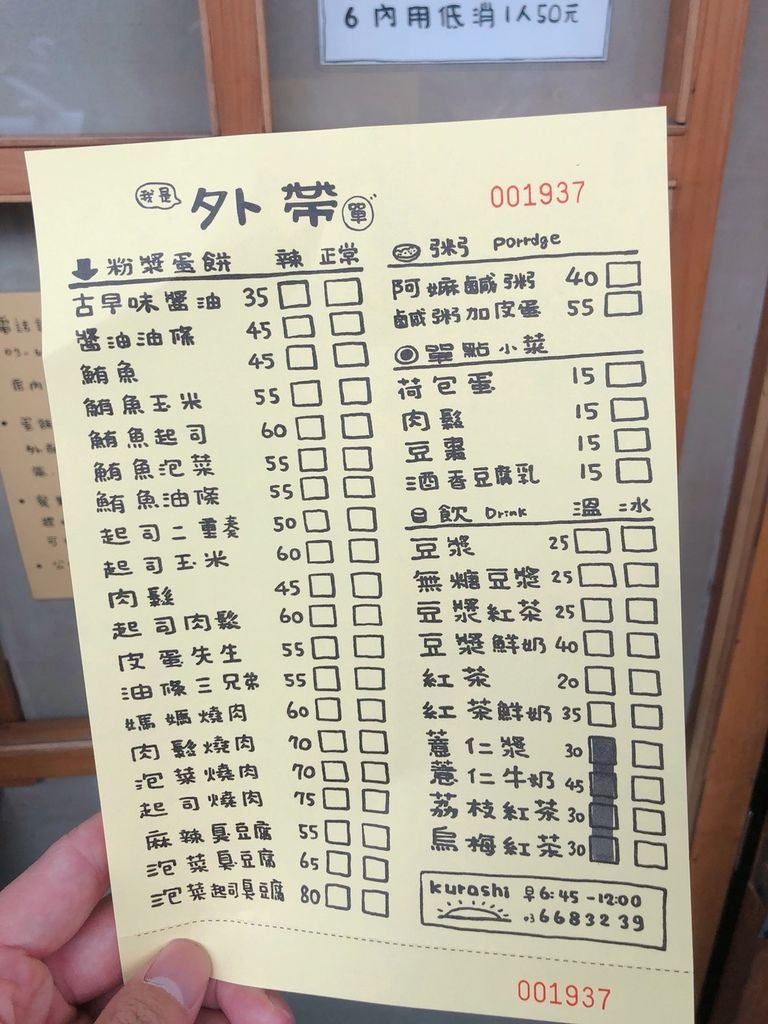 6 內用低消1人50元
我是 外帶 單
001937
粉漿蛋餅 辣 正常
古早味醬油 35
醬油油條 45
鮪魚 45
鮪魚玉米 55
鮪魚起司 60
鮪魚泡菜 55
鮪魚油條 55
起司二重奏 50
起司玉米 60
肉鬆 45
起司肉鬆 60
皮蛋先生 55
油條三兄弟 55
媽媽燒肉 60
肉鬆燒肉 70
泡菜燒肉 70
起司燒肉 75
麻辣臭豆腐 55
泡菜臭豆腐 65
泡菜起司臭豆腐 80
粥 Porridge
阿嬤鹹粥 40
鹹粥加皮蛋 55
單點小菜
荷包蛋 15
肉鬆 15
豆棗 15
酒香豆腐乳 15
飲 Drink 溫 冰
豆漿 25
無糖豆漿 25
豆漿紅茶 25
豆漿鮮奶 40
紅茶 20
紅茶鮮奶 35
薏仁漿 30
薏仁牛奶 45
荔枝紅茶 30
烏梅紅茶 30
kurashi 早6:45-12:00
03 6683239
001937